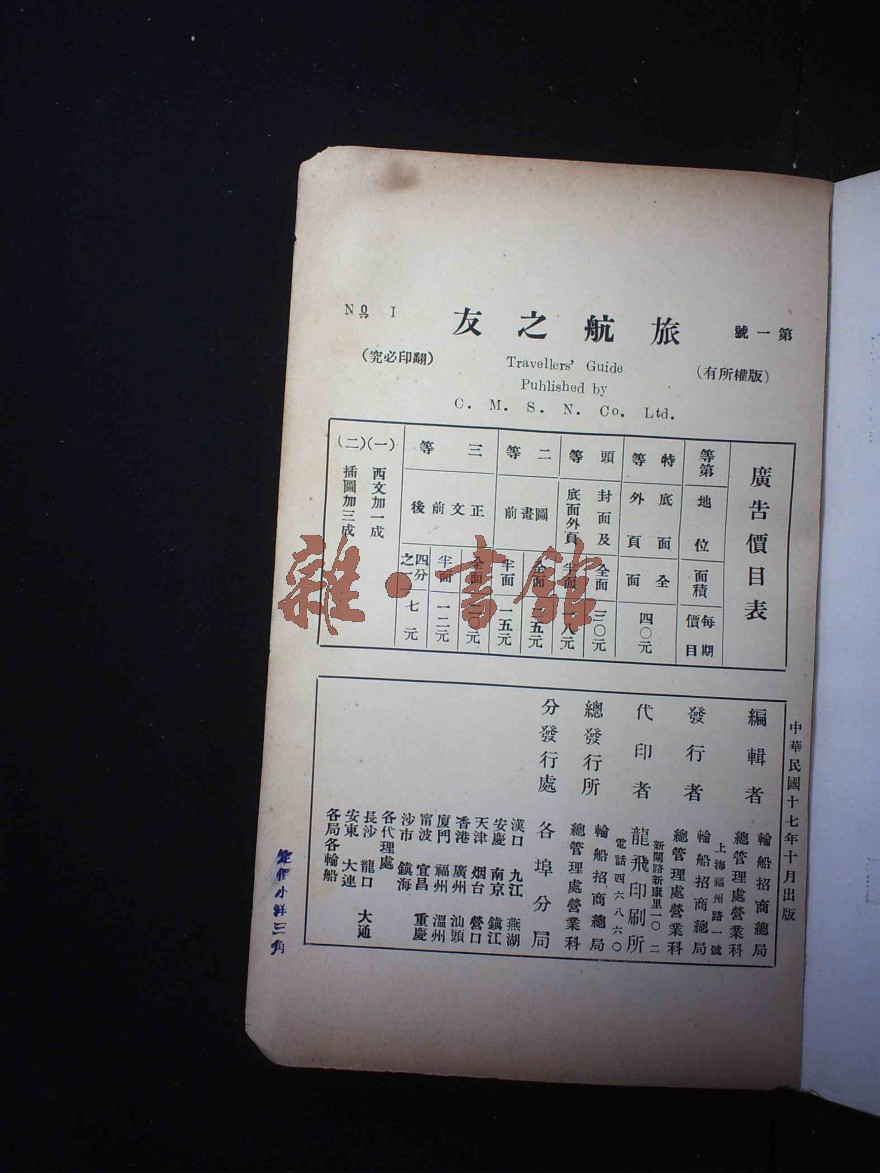 第一號
旅航之友
No. I
(版權所有)
Travellers' Guide
(翻印必究)
Puhlished by
C. M. S. N. Co. Ltd.
廣告價目表
等第 地位 面積 每期價目
特等 底面外頁 全面 四〇元
頭等 封面及底面外頁 全面 三〇元
半面 一八元
二等 圖畫前 全面 二五元
半面 一五元
三等 正文前後 全面 二〇元
半面 一二元
四分之一 七元
(一) 西文加一成
(二) 插圖加三成
雜·書館
中華民國十七年十月出版
編輯者 輪船招商總局
總管理處營業科
上海福州路一號
發行者 輪船招商總局
總管理處營業科
新閘路新康里一〇二
代印者 龍飛印刷所
電話四六八六〇
總發行所 輪船招商總局
總管理處營業科
分發行處 各埠分局
漢口 九江 蕪湖
安慶 南京 鎮江
天津 烟台 營口
香港 廣州 汕頭
廈門 福州 溫州
甯波 宜昌 重慶
沙市 鎮海
各代理處
長沙 龍口 大通
安東 大連
各局各輪船
定價小洋三角